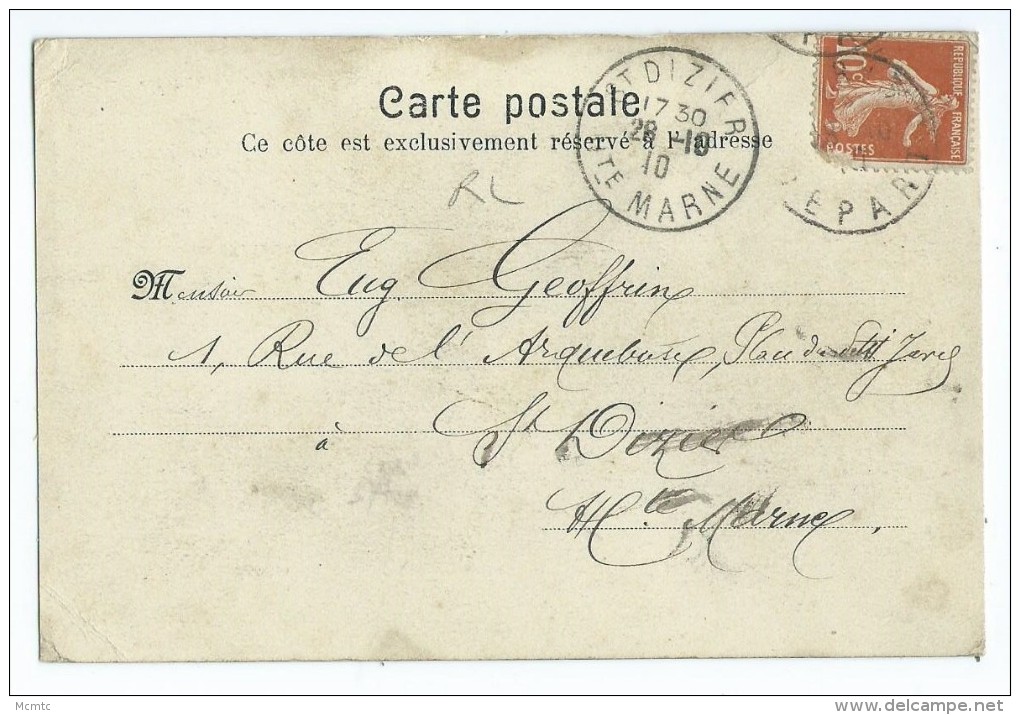 Carte postale
Ce côte est exclusivement réservé à l'adresse
ST DIZIER
17 30
28 -10
10
HTE MARNE
10c
REPUBLIQUE FRANÇAISE
POSTES
DEPART
RL
Monsieur Eug. Geoffrin
1, Rue de l'Arquebuse, Place du Petit Jard
à St Dizier
Hte Marne.
Mcmtc
delcampe.net